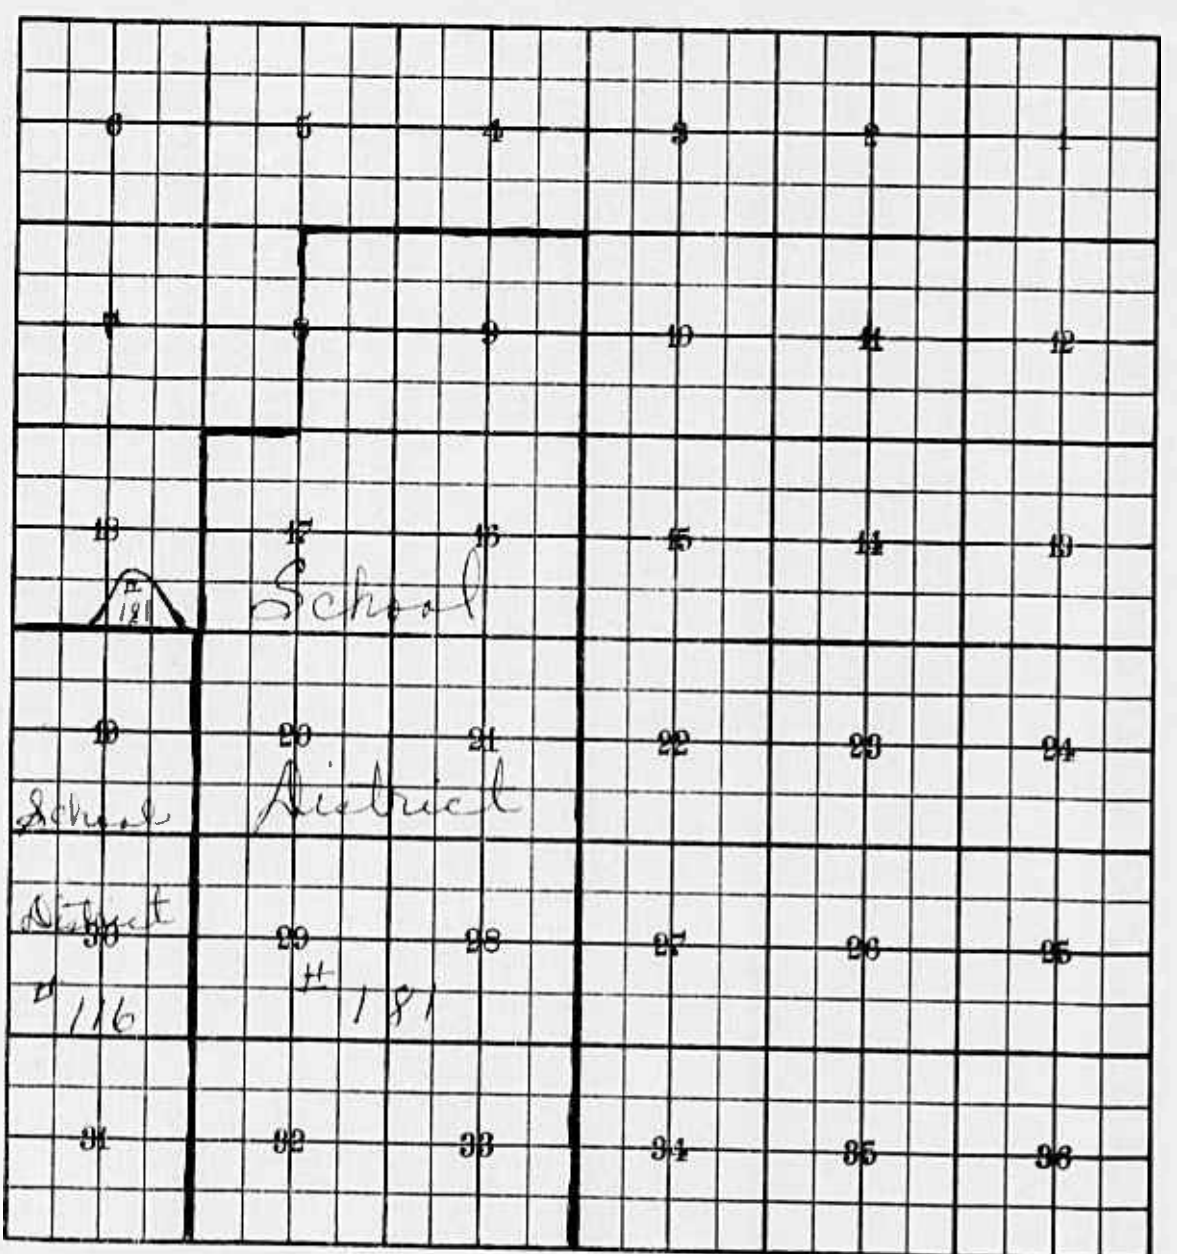 6 5 4 3 2 1
7 8 9 10 11 12
18 17 16 15 14 13
# 181
School
19 20 21 22 23 24
School District
District
30 29 28 27 26 25
# 116 # 181
31 32 33 34 35 36